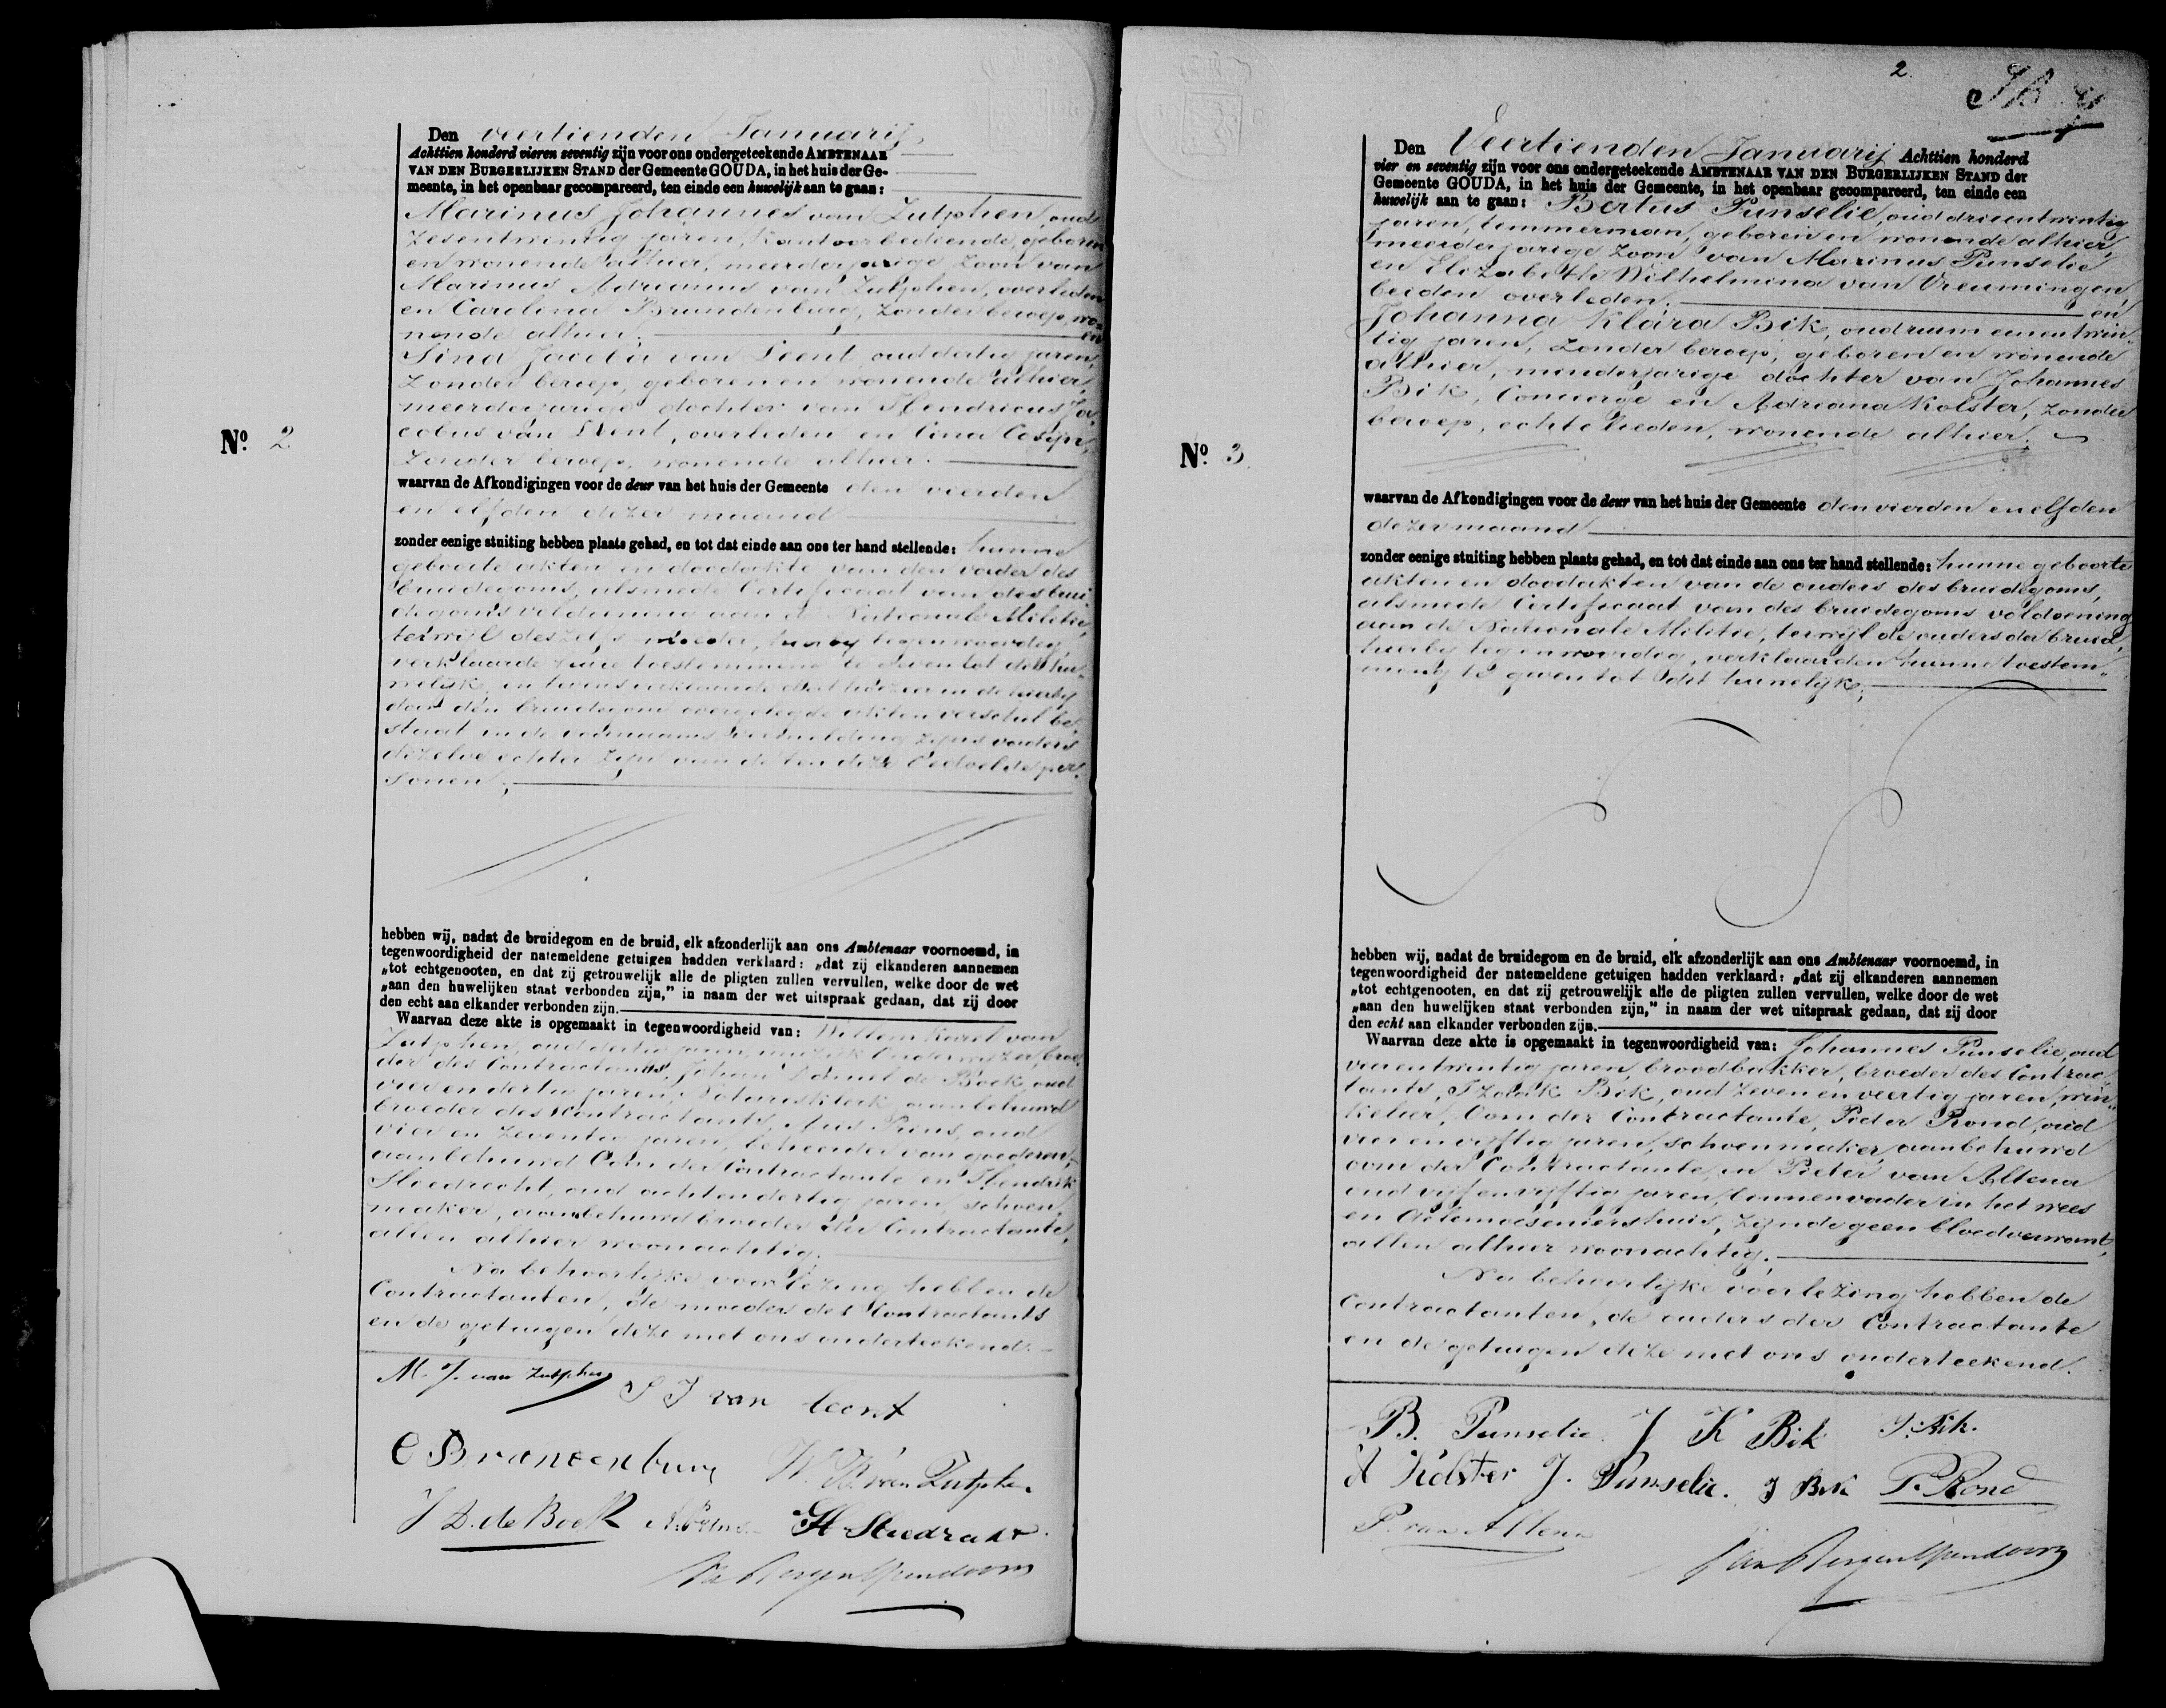 Nº. 2
Den veertienden Januarij
Achttien honderd vieren seventig zijn voor ons ondergeteekende AMBTENAAR
VAN DEN BURGERLIJKEN STAND der Gemeente GOUDA, in het huis der Ge-
meente, in het openbaar gecompareerd, ten einde een huwelijk aan te gaan:
Marinus Johannes van Zutphen, oud
zesentwintig jaren, kantoorbediende, geboren
en wonende alhier, meerderjarige zoon van
Marinus Adrianus van Zutphen, overleden
en Carolina Brandenburg, zonder beroep, wo-
nende alhier. en
Sina Jacoba van Leent, oud dertig jaren,
zonder beroep, geboren en wonende alhier
meerderjarige dochter van Hendricus Ja-
cobus van Leent, overleden en Cosijn,
zonder beroep, wonende alhier.
waarvan de Afkondigingen voor de deur van het huis der Gemeente den vierden
en elfden dezer maand
zonder eenige stuiting hebben plaats gehad, en tot dat einde aan ons ter hand stellende: hunne
geboorte akten en doodakte van den vader des
bruidegoms, alsmede Certificaat van des brui-
degoms voldoening aan de Nationale Militie,
terwijl deszelfs moeder, hierbij tegenwoordig,
verklaarde hare toestemming te geven tot dit hu-
welijk, en tevens verklaarde dat hoezeer in de hierbij
door den bruidegom overgelegde akten verschil be-
staat in de voornaams vermelding zijns vaders
dezelve echter zijn van de ten deze bedoelde per-
sonen;
hebben wij, nadat de bruidegom en de bruid, elk afzonderlijk aan ons Ambtenaar voornoemd, in
tegenwoordigheid der natemeldene getuigen hadden verklaard: „dat zij elkanderen aannemen
„tot echtgenooten, en dat zij getrouwelijk alle de pligten zullen vervullen, welke door de wet
„aan den huwelijken staat verbonden zijn,” in naam der wet uitspraak gedaan, dat zij door
den echt aan elkander verbonden zijn.
Waarvan deze akte is opgemaakt in tegenwoordigheid van: Willem Karel van
Zutphen, oud dertig jaren, muzijk onderwijzer, broe-
der des Contractants, Johan Daniel de Boek, oud
vier en dertig jaren, Notarisklerk, aanbehuwd
broeder des Contractants, Prins, oud
vier en zeventig jaren, beheerder van goederen,
aanbehuwd Oom der Contractante en Hendrik
Sliedrecht, oud achtendertig jaren, schoen-
maker, aanbehuwd broeder der Contractante,
allen alhier woonachtig.
Na behoorlijke voorlezing hebben de
Contractanten, de moeder des Contractants
en de getuigen deze met ons onderteekend.
M. J. van Zutphen
S J van Leent
C Brandenburg
W. K. van Zutphen
J D. de Boek
H Sliedrecht
2
Nº. 3.
Den Veertienden Januarij Achttien honderd
vier en seventig zijn voor ons ondergeteekende AMBTENAAR VAN DEN BURGERLIJKEN STAND der
Gemeente GOUDA, in het huis der Gemeente, in het openbaar gecompareerd, ten einde een
huwelijk aan te gaan: Bertus Punselie, oud drieentwintig
jaren, timmerman, geboren en wonende alhier,
meerderjarige zoon van Marinus Punselie
en Elizabeth Wilhelmina van Vreumingen,
beiden overleden. en
Johanna Klara Bik, oud ruim eenentwin-
tig jaren, zonder beroep, geboren en wonende
alhier, minderjarige dochter van Johannes
Bik, Concierge en Adriana Kolster, zonder
beroep, echtelieden, wonende alhier.
waarvan de Afkondigingen voor de deur van het huis der Gemeente den vierden en elfden
dezer maand
zonder eenige stuiting hebben plaats gehad, en tot dat einde aan ons ter hand stellende: hunne geboorte
akten en doodakten van de ouders des bruidegoms,
alsmede Certificaat van des bruidegoms voldoening
aan de Nationale Militie, terwijl de ouders der bruid,
hierbij tegenwoordig, verklaarden hunne toestem-
ming te geven tot dit huwelijk;
hebben wij, nadat de bruidegom en de bruid, elk afzonderlijk aan ons Ambtenaar voornoemd, in
tegenwoordigheid der natemeldene getuigen hadden verklaard: „dat zij elkanderen aannemen
„tot echtgenooten, en dat zij getrouwelijk alle de pligten zullen vervullen, welke door de wet
„aan den huwelijken staat verbonden zijn,” in naam der wet uitspraak gedaan, dat zij door
den echt aan elkander verbonden zijn.
Waarvan deze akte is opgemaakt in tegenwoordigheid van: Johannes Punselie, oud
vierentwintig jaren, broodbakker, broeder des Contrac-
tants, Izaak Bik, oud zeven en veertig jaren, win-
kelier, Oom der Contractante, Pieter Rond, oud
vier en vijftig jaren, schoenmaker, aanbehuwd
oom der Contractante, en Pieter van Altena
oud vijfenvijftig jaren, binnenvader in het wees
en Aelemoeseniershuis, zijnde geen bloedverwant,
allen alhier woonachtig.
Na behoorlijke voorlezing hebben de
Contractanten, de ouders der Contractante
en de getuigen deze met ons onderteekend.
B. Punselie. J K Bik J. Bik.
A Kolster J. Punselie. J Bik P. Rond
P. van Altena